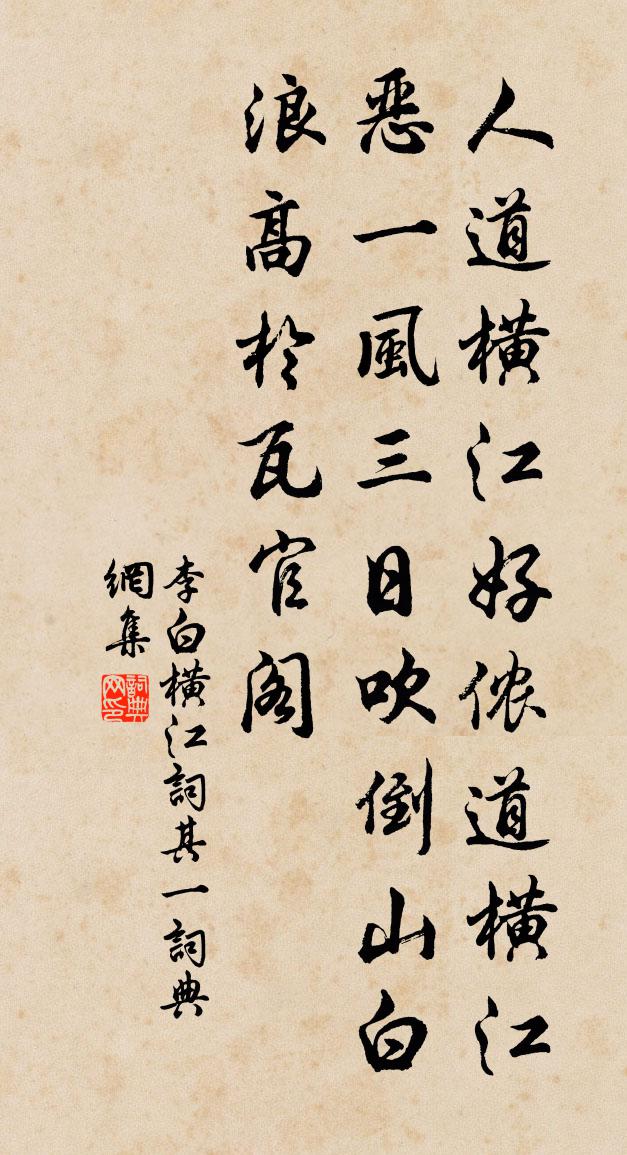 人道橫江好侬道橫江
惡一風三日吹倒山白
浪高於瓦官阁
李白橫江詞其一詞典
網集
詞典
网印